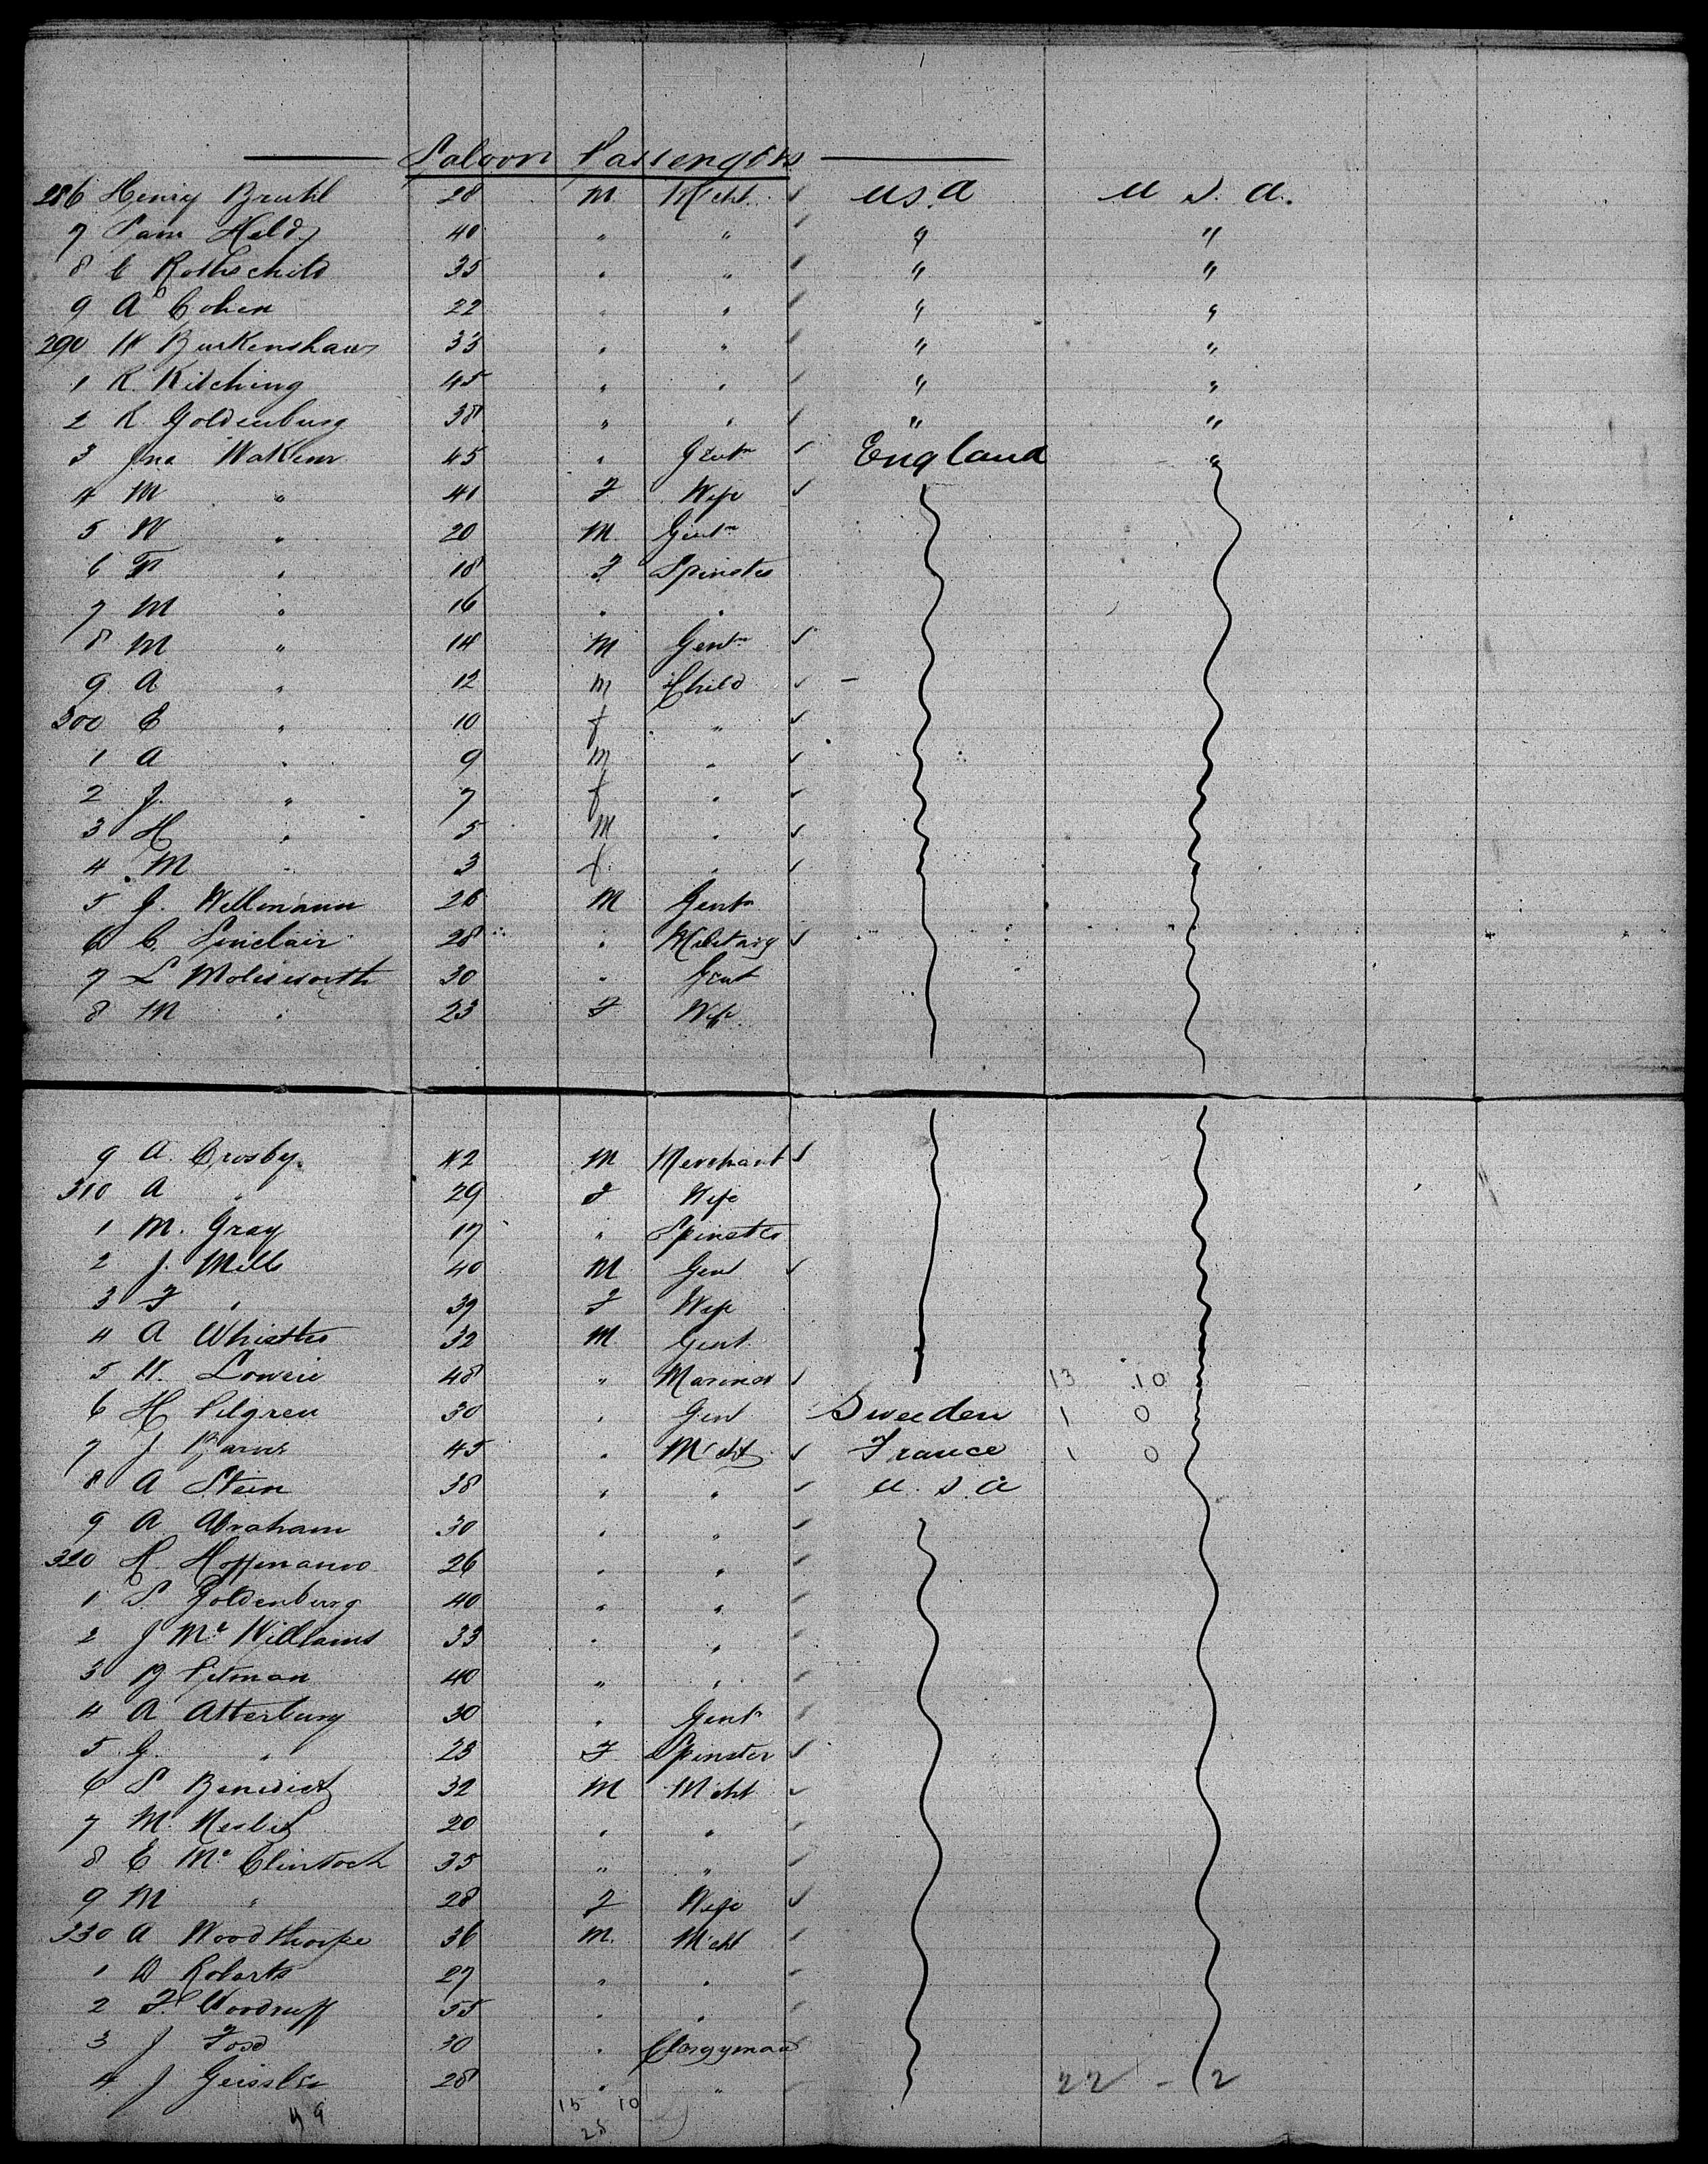 Saloon Passengers
286 Henry Bruhl 28 M Mcht ✓ U S. A U S. A.
7 Sam Held 40 " " ✓ " "
8 C Rothschild 35 " " ✓ " "
9 A Cohen 22 " " ✓ " "
290 W Burkenshaw 33 " " ✓ " "
1 R Kitching 45 " " ✓ " "
2 R Goldenburg 38 " " ✓ " "
3 Jno Wakem 45 " Gentn ✓ England "
4 M " 40 F Wife ✓
5 W " 20 M Gentn
6 F " 18 F Spinster
7 M " 16 " "
8 M " 14 M Gentn ✓
9 A " 12 M Child ✓ -
300 E " 10 f " ✓
1 A " 9 M " ✓
2 J. " 7 f " ✓
3 H " 5 M " ✓
4 M " 3 f " ✓
5 J. Wellmann 26 M Gentn
6 C Sinclair 28 " Military ✓
7 L Molesworth 30 " Gent
8 M " 23 F Wife
9 A. Crosby 42 M Merchant ✓
310 A " 29 F Wife
1 M. Gray 17 " Spinster
2 J. Mills 40 M Gent ✓
3 F " 39 F Wife
4 A Whistler 32 M Gent
5 W. 48 " Mariner ✓ 13 10
6 H Pilgren 30 " Gent Sweeden 1 0
7 J 45 " Mcht ✓ France 1 0
8 A Stein 38 " " ✓ U. S. A
9 A Abraham 30 " " ✓
320 H. 26 " " ✓
1 S. Goldenburg 40 " " ✓
2 J Mc Williams 33 " " ✓
3 B Pitman 40 " " ✓
4 A Atterbury 30 " Gentn ✓
5 G " 23 F Spinster ✓
6 S Benedict 32 M Mcht ✓
7 M. Nesbit 20 " " ✓
8 E Mc Clintock 35 " " ✓
9 M " 28 F Wife ✓
330 A Woodthorpe 36 M. Mcht ✓
1 W Roberts 27 " " ✓
2 F. Woodruff 55 " " ✓
3 J Ford 30 " Clergyman ✓
4 J Geissler 28 " " ✓ 22 - 2
49 15 10
25